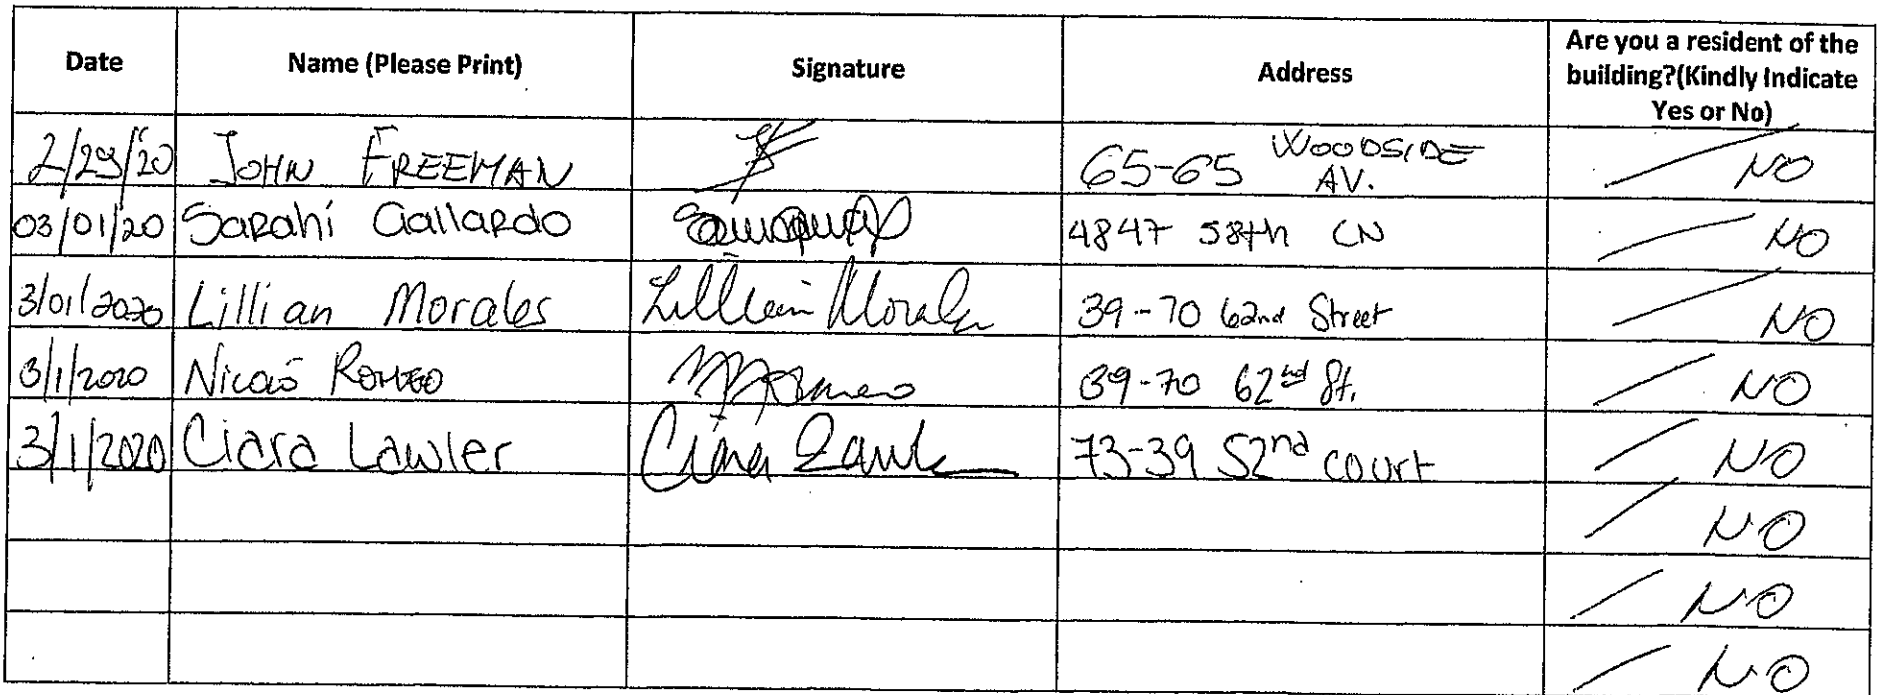 Date Name (Please Print) Signature Address Are you a resident of the building?(Kindly Indicate Yes or No)
2/29/20 JOHN FREEMAN 65-65 WOODSIDE AV. / NO
03/01/20 Sarahi Gallardo 4847 58th LN / NO
3/01/2020 Lillian Morales Lillian Morales 39-70 62nd Street / NO
3/1/2020 ROMEO Romeo 39-70 62nd St. / NO
3/1/2020 Ciara Lawler Ciara Lawl 73-39 52nd court / NO
/ NO
/ NO
/ NO